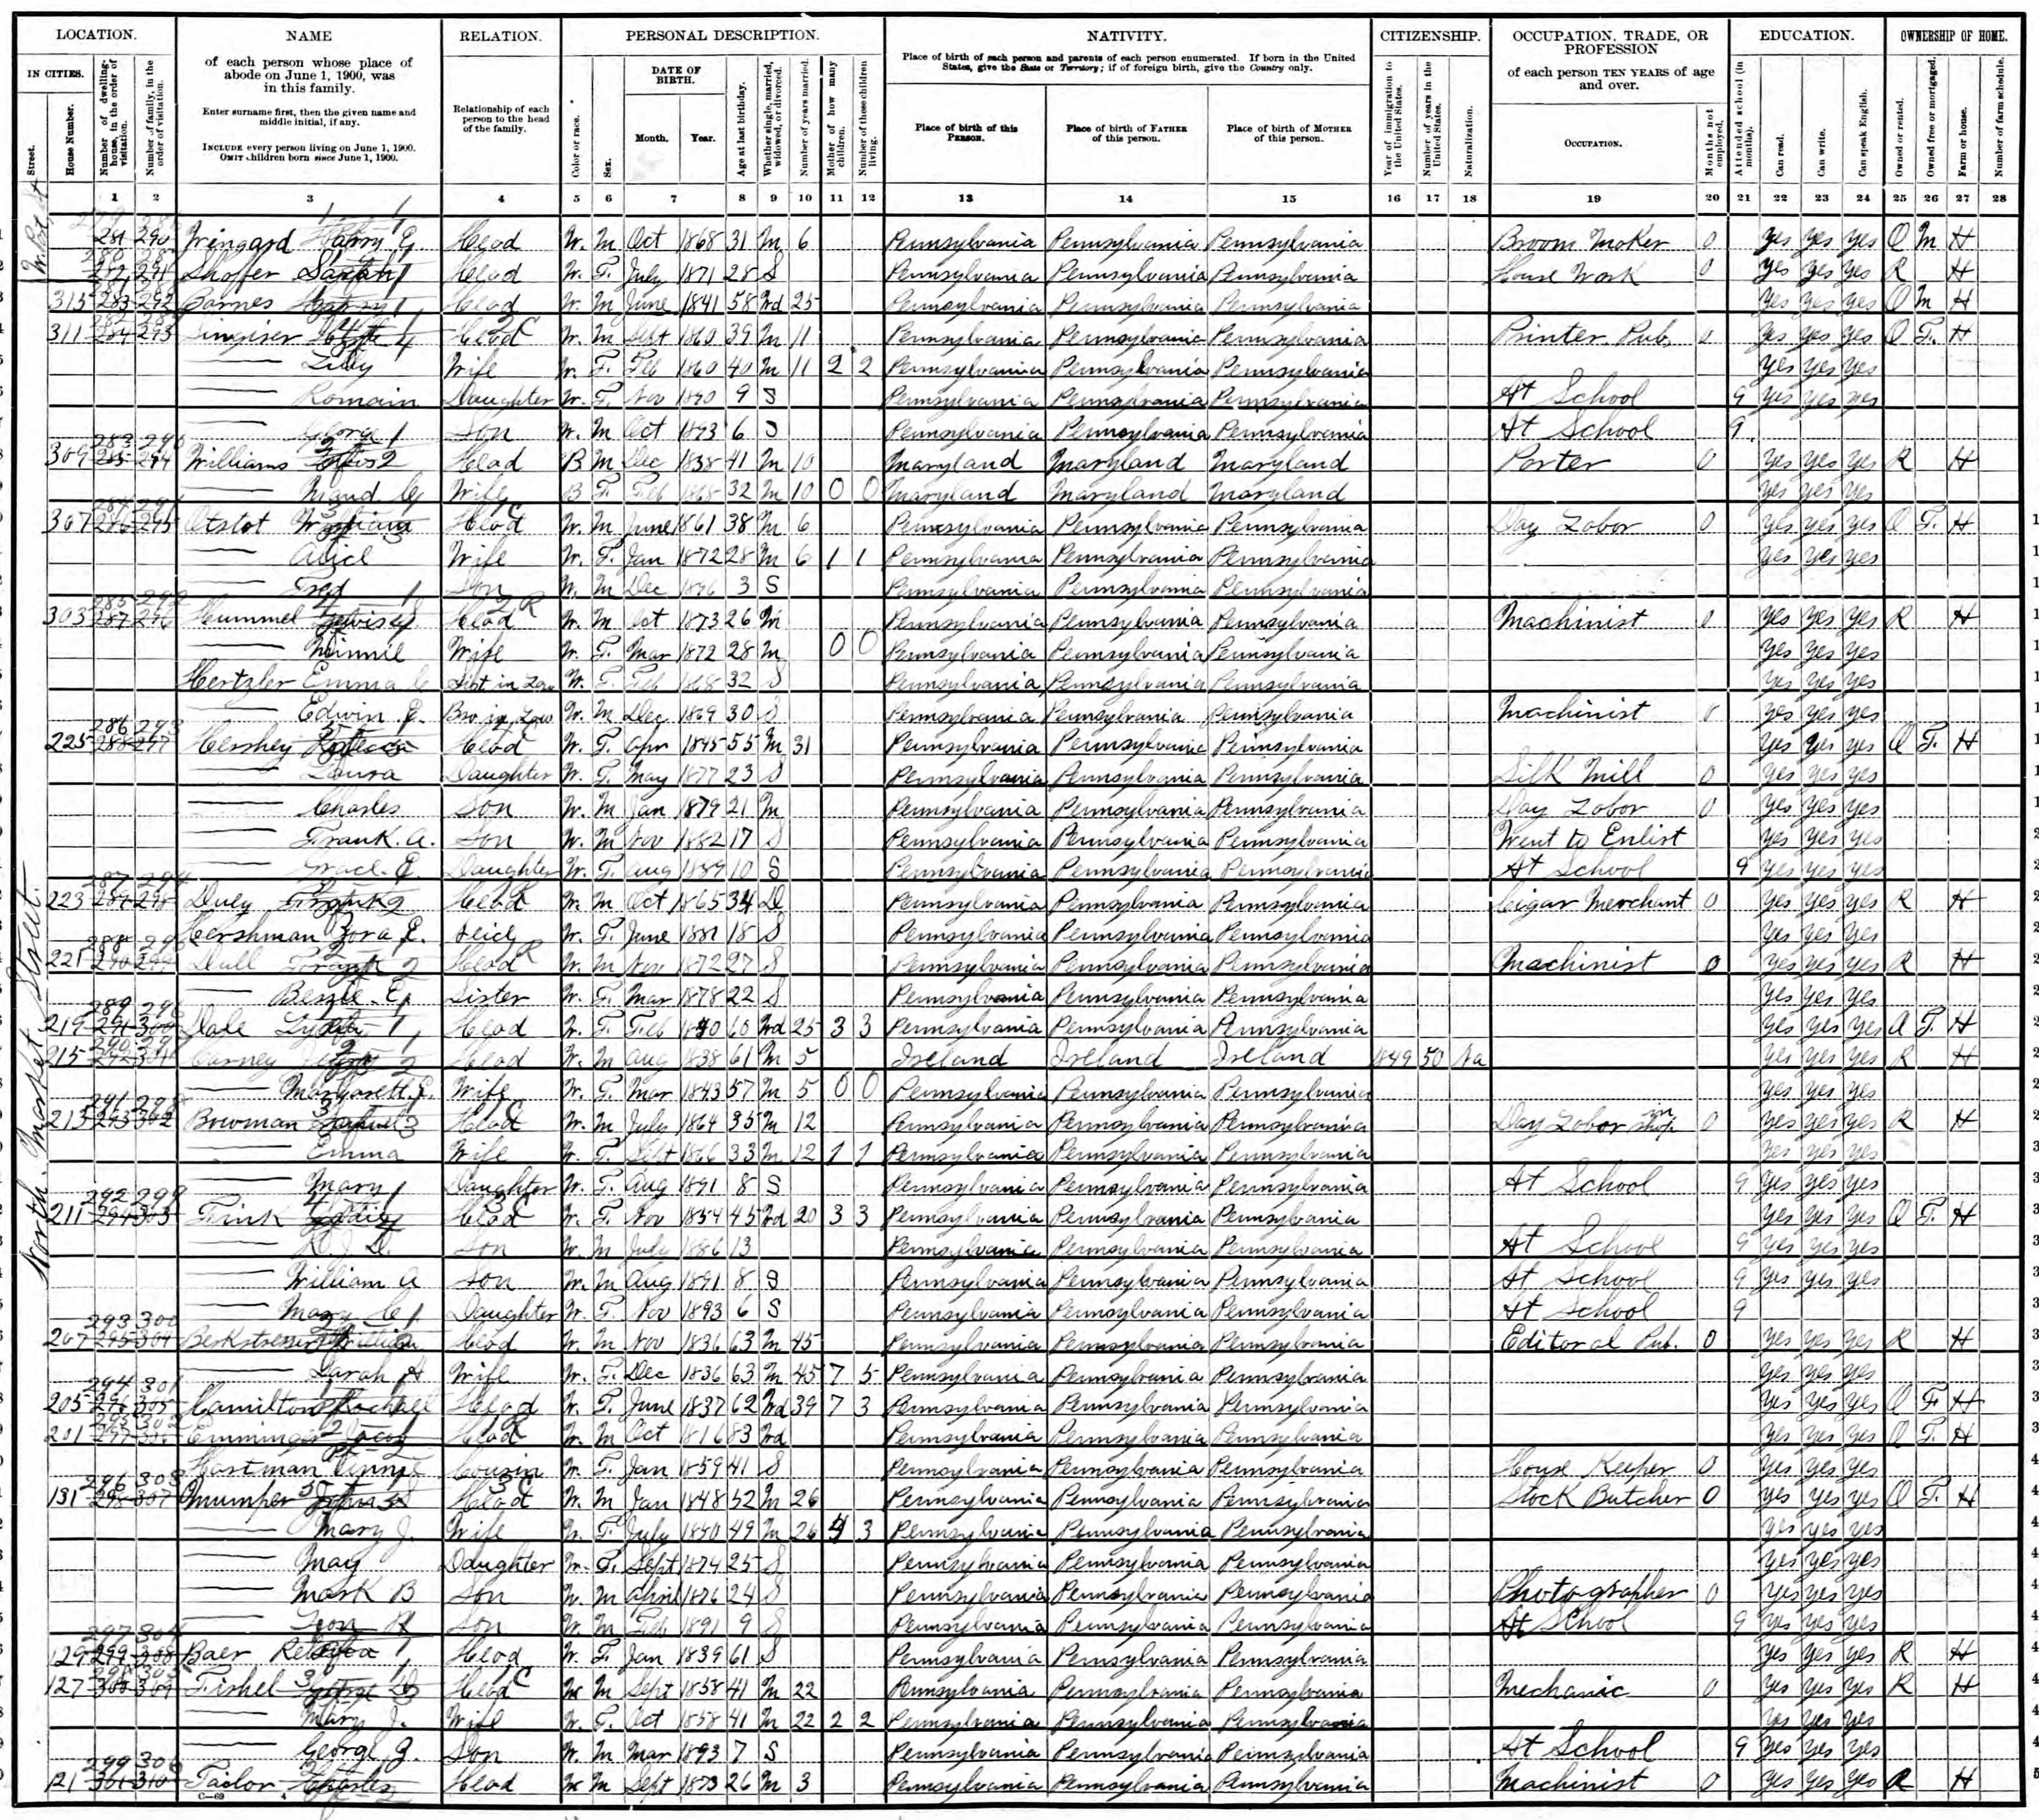 LOCATION. NAME RELATION. PERSONAL DESCRIPTION. NATIVITY. CITIZENSHIP. OCCUPATION, TRADE, OR PROFESSION EDUCATION. OWNERSHIP OF HOME.
IN CITIES. of each person whose place of abode on June 1, 1900, was in this family. Relationship of each person to the head of the family. DATE OF BIRTH. Place of birth of each person and parents of each person enumerated. If born in the United States, give the State or Territory; if of foreign birth, give the Country only. of each person TEN YEARS of age and over.
Enter surname first, then the given name and middle initial, if any.
INCLUDE every person living on June 1, 1900. OMIT children born since June 1, 1900.
Street. House Number. Number of dwelling-house, in the order of visitation. Number of family, in the order of visitation. Color or race. Sex. Month. Year. Age at last birthday. Whether single, married, widowed, or divorced. Number of years married. Mother of how many children. Number of these children living. Place of birth of this PERSON. Place of birth of FATHER of this person. Place of birth of MOTHER of this person. Year of immigration to the United States. Number of years in the United States. Naturalization. OCCUPATION. Months not employed. Attended school (in months). Can read. Can write. Can speak English. Owned or rented. Owned free or mortgaged. Farm or house. Number of farm schedule.
1 2 3 4 5 6 7 8 9 10 11 12 13 14 15 16 17 18 19 20 21 22 23 24 25 26 27 28
281 290 Wingard Harry G. Head W. M Oct 1868 31 M 6 Pennsylvania Pennsylvania Pennsylvania Broom Maker 0 yes yes yes O M H
Shoffer Sarah Head W. F. July 1871 28 S Pennsylvania Pennsylvania Pennsylvania House Work 0 yes yes yes R H
313 283 292 Barnes Head W. M June 1841 58 Wd 25 Pennsylvania Pennsylvania Pennsylvania yes yes yes O M H
311 284 293 Singiser Head W. M Sept 1860 39 M 11 Pennsylvania Pennsylvania Pennsylvania Printer Pub. 0 yes yes yes O F. H
Lilly Wife W. F. Feb 1860 40 M 11 2 2 Pennsylvania Pennsylvania Pennsylvania yes yes yes
Romain Daughter W. F. Nov 1890 9 S Pennsylvania Pennsylvania Pennsylvania At School 9 yes yes yes
George Son W. M Oct 1893 6 S Pennsylvania Pennsylvania Pennsylvania At School 9
309 285 294 Williams Head B M Dec 1858 41 M 10 Maryland Maryland Maryland Porter 0 yes yes yes R H
Maud Wife B F. Feb 1868 32 M 10 0 0 Maryland Maryland Maryland yes yes yes
307 286 295 Otstot William Head W. M June 1861 38 M 6 Pennsylvania Pennsylvania Pennsylvania Day Labor 0 yes yes yes O F. H
Alice Wife W. F. Jan 1872 28 M 6 1 1 Pennsylvania Pennsylvania Pennsylvania yes yes yes
Fred Son W. M Dec 1896 3 S Pennsylvania Pennsylvania Pennsylvania
303 287 296 Hummel Lewis Head W. M Oct 1873 26 M Pennsylvania Pennsylvania Pennsylvania Machinist 0 yes yes yes R H
Minnie Wife W. F. Mar 1872 28 M 0 0 Pennsylvania Pennsylvania Pennsylvania yes yes yes
Hertzler Emma Sist in Law W. F. Feb 1868 32 S Pennsylvania Pennsylvania Pennsylvania yes yes yes
Edwin E. Bro in Law W. M Dec 1869 30 S Pennsylvania Pennsylvania Pennsylvania Machinist 0 yes yes yes
225 288 297 Hershey Rebecca Head W. F. Apr 1845 55 M 31 Pennsylvania Pennsylvania Pennsylvania yes yes yes O F. H
Laura Daughter W. F. May 1877 23 S Pennsylvania Pennsylvania Pennsylvania Silk Mill 0 yes yes yes
Charles Son W. M Jan 1879 21 M Pennsylvania Pennsylvania Pennsylvania Day Labor 0 yes yes yes
Frank. A. Son W. M Nov 1882 17 S Pennsylvania Pennsylvania Pennsylvania Went to Enlist yes yes yes
Grace. E. Daughter W. F. Aug 1889 10 S Pennsylvania Pennsylvania Pennsylvania At School 9 yes yes yes
223 289 298 Duey Frank Head W. M Oct 1865 34 D Pennsylvania Pennsylvania Pennsylvania Cigar Merchant 0 yes yes yes R H
Hershman Zora E. Neice W. F. June 1881 18 S Pennsylvania Pennsylvania Pennsylvania yes yes yes
221 290 299 Dull Frank Head W. M Nov 1872 27 S Pennsylvania Pennsylvania Pennsylvania Machinist 0 yes yes yes R H
Bessie E. Sister W. F. Mar 1878 22 S Pennsylvania Pennsylvania Pennsylvania yes yes yes
219 291 300 Dale Lydia Head W. F. Feb 1840 60 Wd 25 3 3 Pennsylvania Pennsylvania Pennsylvania yes yes yes O F. H
215 292 301 Carney Head W. M Aug 1838 61 M 5 Ireland Ireland Ireland 1849 50 Na yes yes yes R H
Margarett E. Wife W. F. Mar 1843 57 M 5 0 0 Pennsylvania Pennsylvania Pennsylvania yes yes yes
213 293 302 Bowman Head W. M July 1864 35 M 12 Pennsylvania Pennsylvania Pennsylvania Day Labor in shop 0 yes yes yes R H
Emma Wife W. F. Sept 1866 33 M 12 1 1 Pennsylvania Pennsylvania Pennsylvania yes yes yes
Mary Daughter W. F. Aug 1891 8 S Pennsylvania Pennsylvania Pennsylvania At School 9 yes yes yes
211 294 303 Fink Head W. F. Nov 1854 45 Wd 20 3 3 Pennsylvania Pennsylvania Pennsylvania yes yes yes O F. H
Son W. M July 1886 13 Pennsylvania Pennsylvania Pennsylvania At School 9 yes yes yes
William A Son W. M Aug 1891 8 S Pennsylvania Pennsylvania Pennsylvania At School 9 yes yes yes
Mary C Daughter W. F. Nov 1893 6 S Pennsylvania Pennsylvania Pennsylvania At School 9
207 295 304 William Head W. M Nov 1836 63 M 45 Pennsylvania Pennsylvania Pennsylvania Editor al Pub. 0 yes yes yes R H
Sarah A Wife W. F. Dec 1836 63 M 45 7 5 Pennsylvania Pennsylvania Pennsylvania yes yes yes
205 296 305 Hamilton Rachael Head W. F. June 1837 62 Wd 39 7 3 Pennsylvania Pennsylvania Pennsylvania yes yes yes O F H
201 297 306 Emminger Jacob Head W. M Oct 1816 83 Wd Pennsylvania Pennsylvania Pennsylvania yes yes yes O F. H
Hastman Cousin W. F. Jan 1859 41 S Pennsylvania Pennsylvania Pennsylvania House Keeper 0 yes yes yes
131 298 307 Mumper Head W. M Jan 1848 52 M 26 Pennsylvania Pennsylvania Pennsylvania Stock Butcher 0 yes yes yes O F. H
Mary J. Wife W. F. July 1850 49 M 26 4 3 Pennsylvania Pennsylvania Pennsylvania yes yes yes
May Daughter W. F. Sept 1874 25 S Pennsylvania Pennsylvania Pennsylvania yes yes yes
Mark B Son W. M April 1876 24 S Pennsylvania Pennsylvania Pennsylvania Photographer 0 yes yes yes
Leon R Son W. M Feb 1891 9 S Pennsylvania Pennsylvania Pennsylvania At School 9 yes yes yes
129 299 308 Baer Rebecca Head W. F. Jan 1839 61 S Pennsylvania Pennsylvania Pennsylvania yes yes yes R H
127 300 309 Fishel George Head W. M Sept 1858 41 M 22 Pennsylvania Pennsylvania Pennsylvania Mechanic 0 yes yes yes R H
Mary J. Wife W. F. Oct 1858 41 M 22 2 2 Pennsylvania Pennsylvania Pennsylvania yes yes yes
George J. Son W. M Mar 1893 7 S Pennsylvania Pennsylvania Pennsylvania At School 9 yes yes yes
121 301 310 Tailor Charles Head W M Sept 1873 26 M 3 Pennsylvania Pennsylvania Pennsylvania Machinist 0 yes yes yes R H
North Market Street.